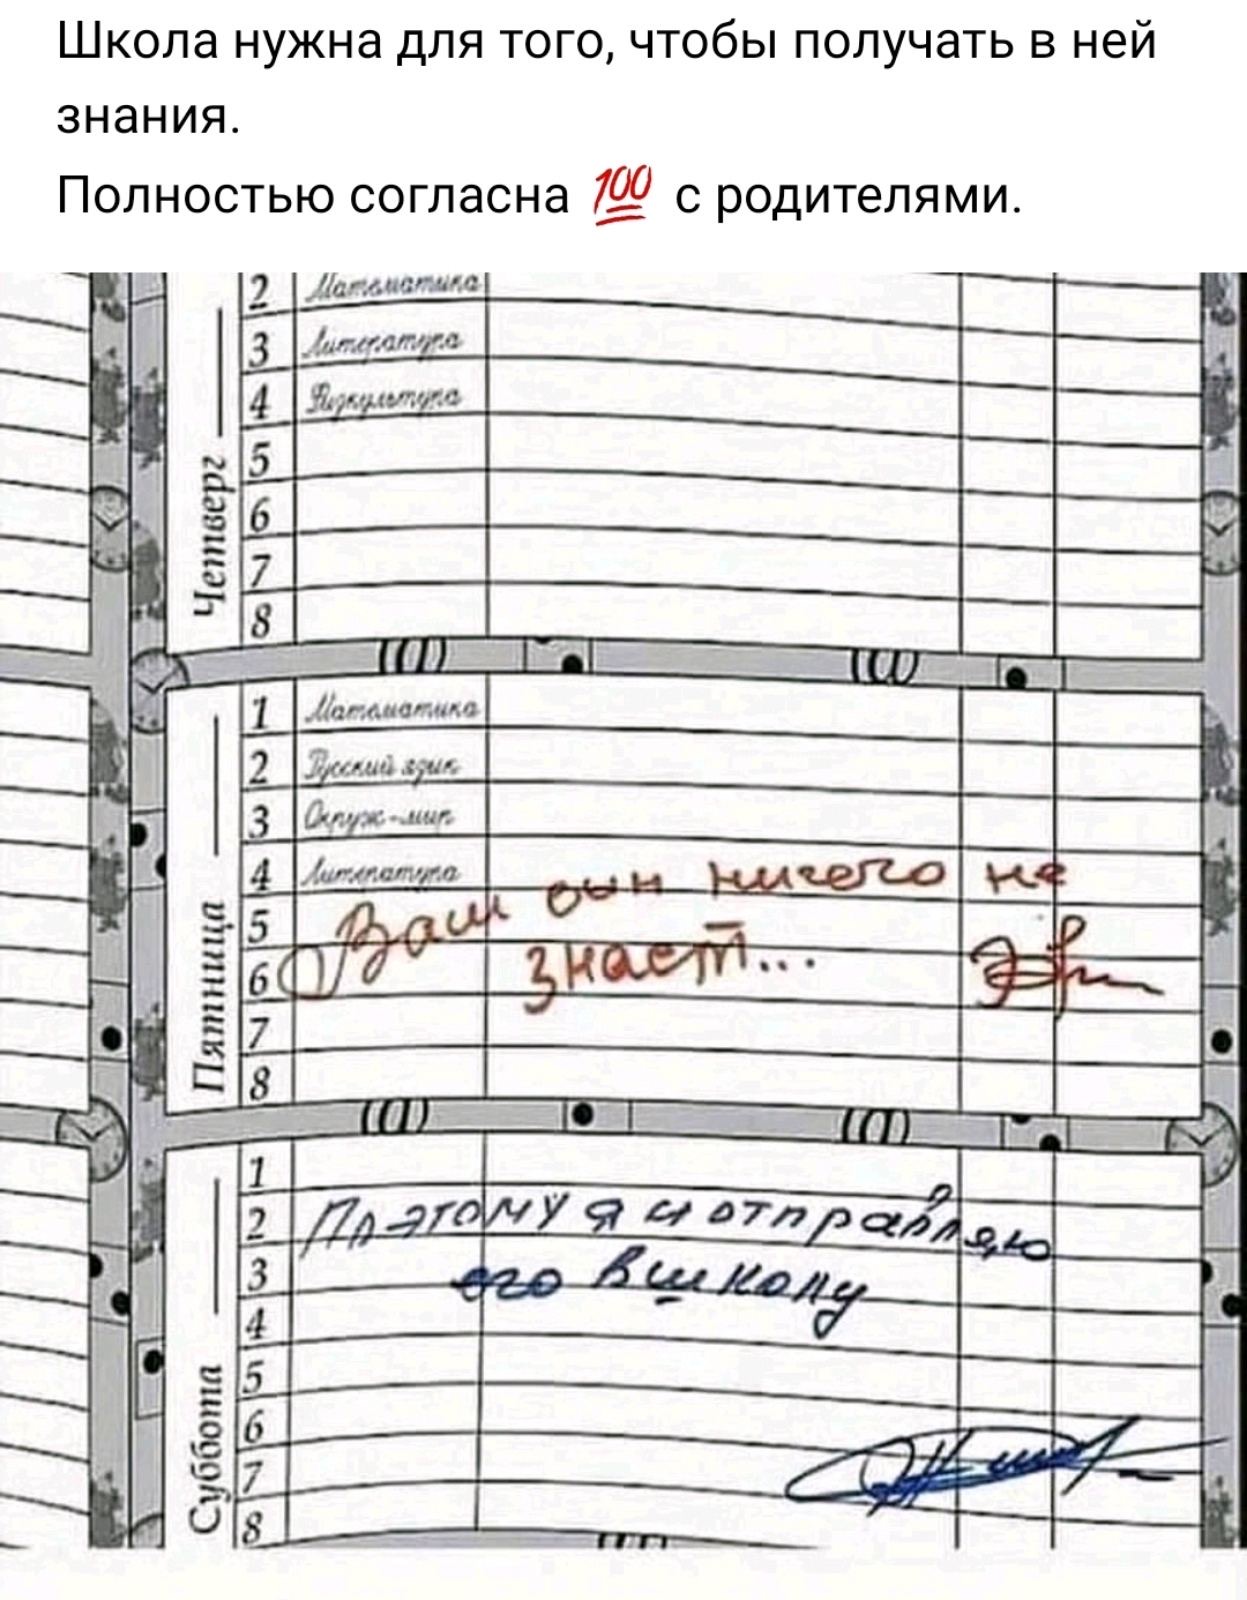 Школа нужна для того, чтобы получать в ней
знания.
Полностью согласна 💯 с родителями.
2 Математика
3 Литература
4 Физкультура
5
6
7
8
Четверг
1 Математика
2 Русский язык
3 Окруж-мир
4 Литература
5
6
7
8
Пятница
Ваш сын ничего не
знает...
1
2
3
4
5
6
7
8
Суббота
Поэтому я и отправляю
его в школу